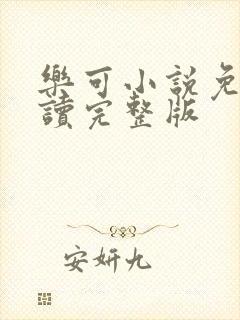 樂可小說免
讀完整版
安妍九